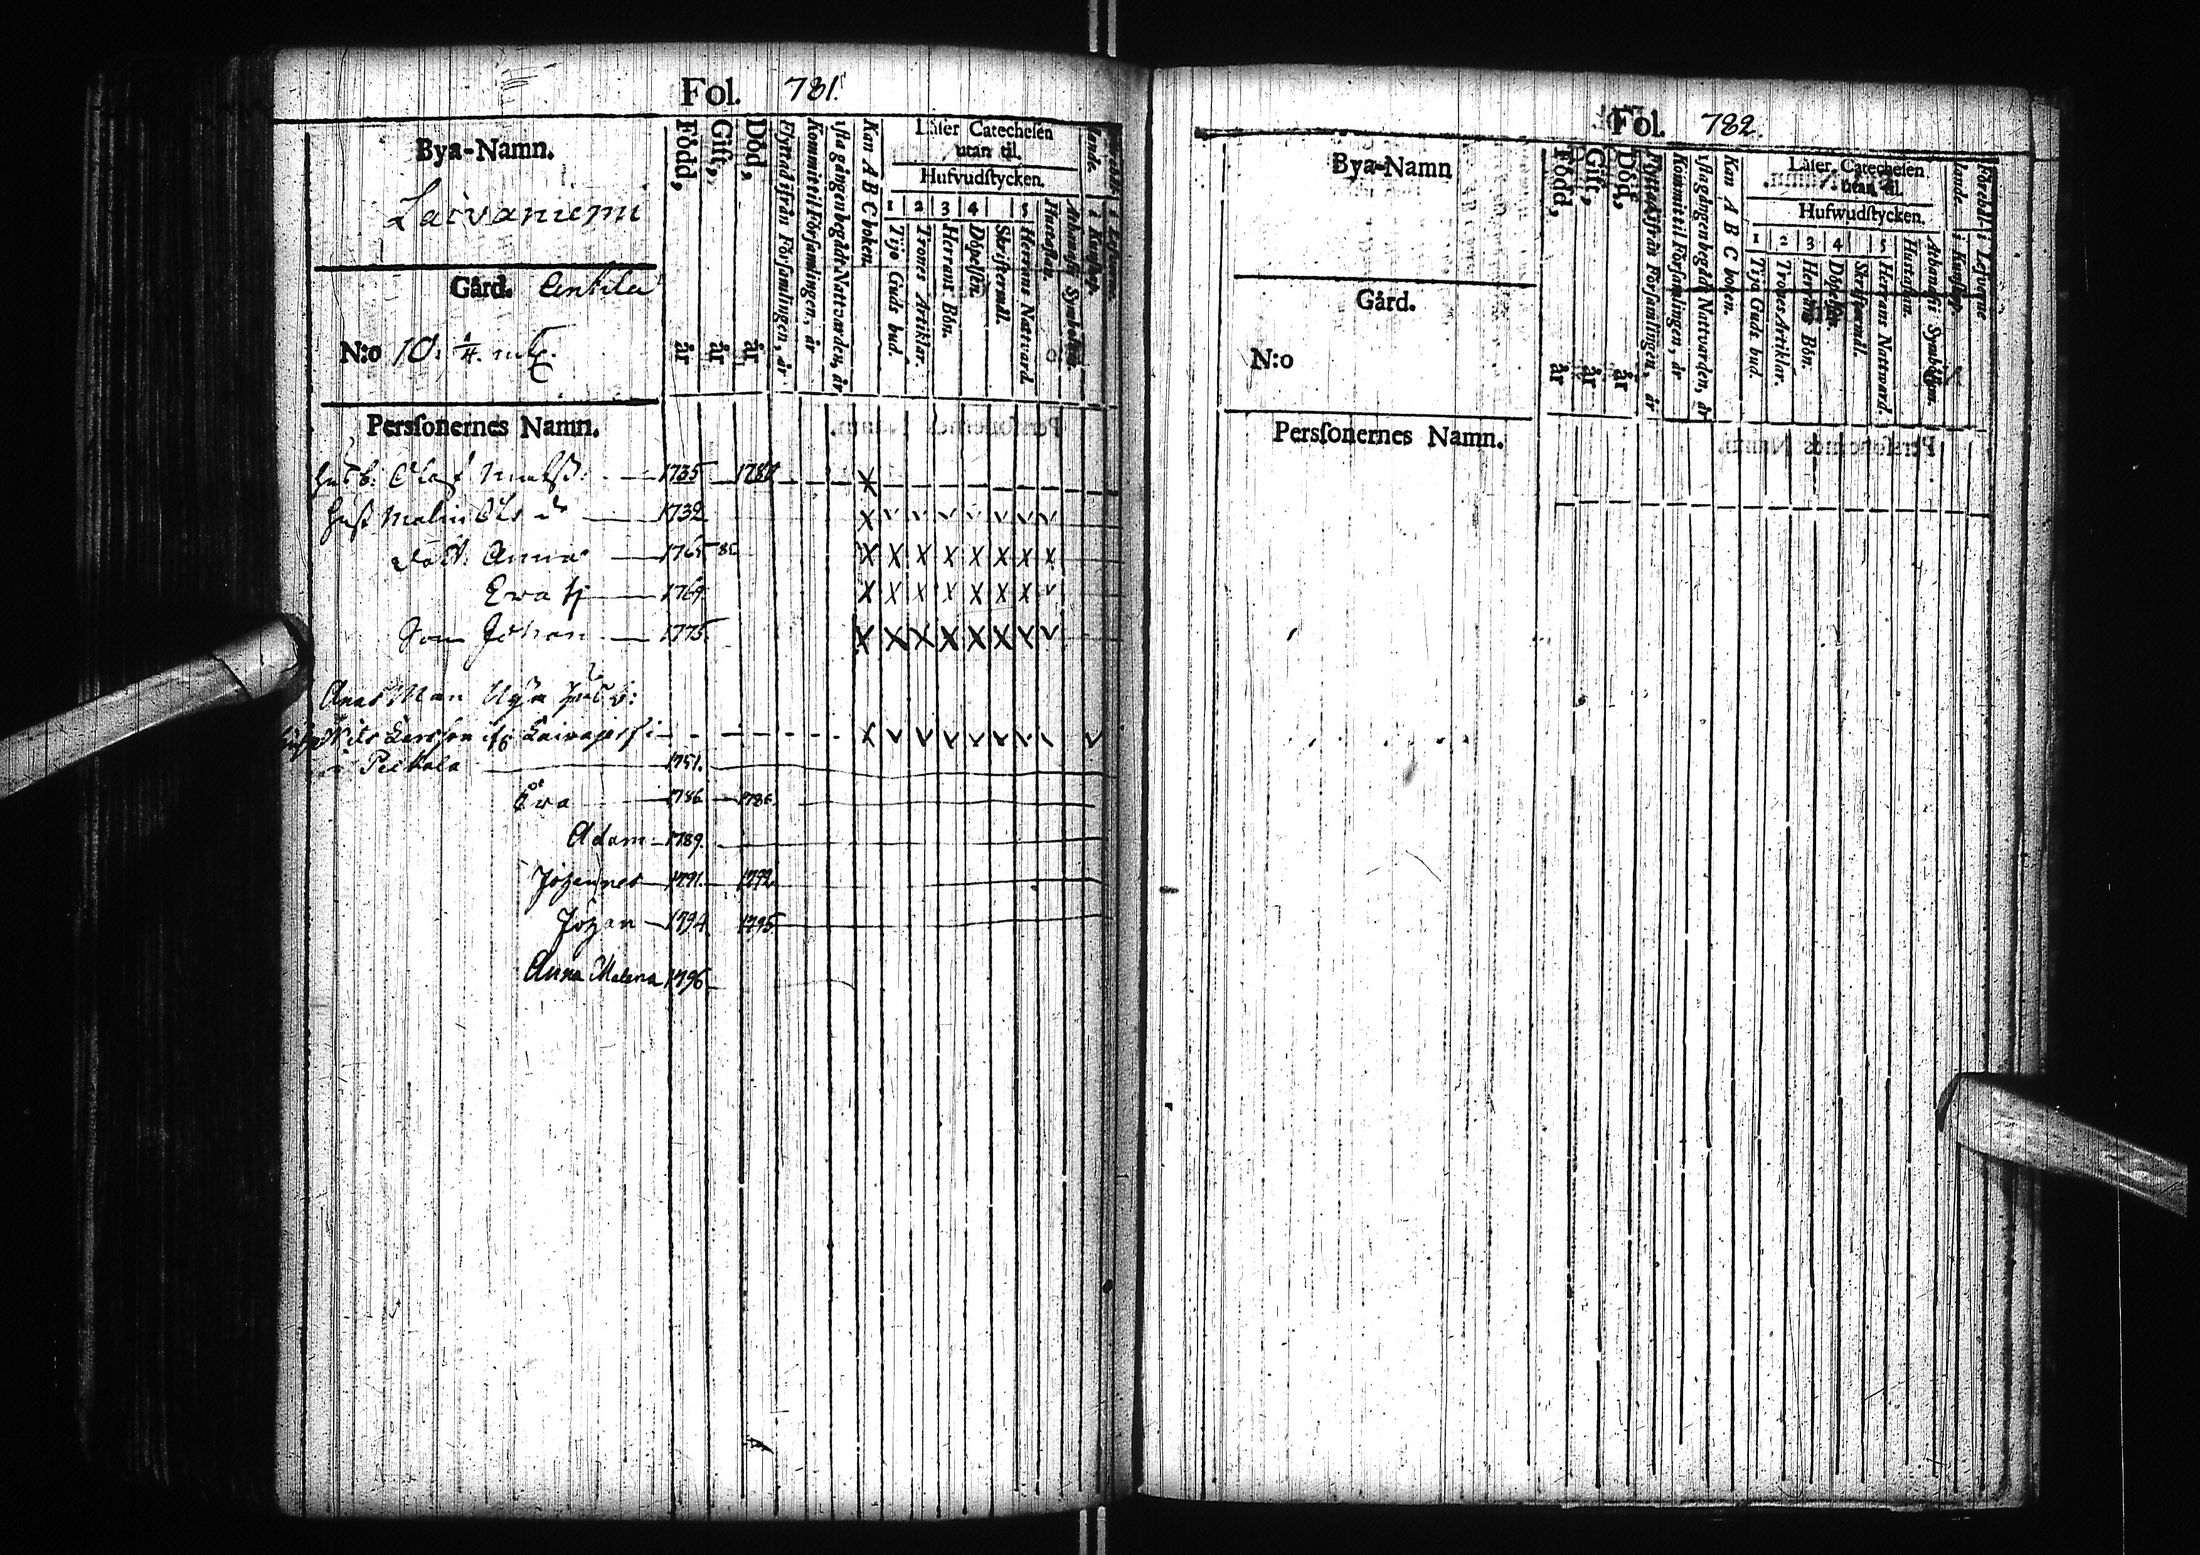 Fol. 781.
Bya-Namn.
Laivaniemi
Gård. Anttila
N:o 10. 1/4. mtl.
Född, år
Gift, år
Död, år
Flyttad ifrån Församlingen, år
Kommit til Församlingen, år
1sta gången begådt Nattvarden, år
Kan A B C boken.
Läser Catechesen
utan til.
Hufvudstycken.
1 2 3 4 5
Tijo Guds bud.
Trones Artiklar.
Herrans Bön.
Döpelsen.
Skriftermål.
Herrans Nattvard.
Hustaflan.
Athanasii Symbolum.
i Kunskap.
i Lefverne.
Perssonernes Namn.
Husb: Olof Matss: 1735 1787
Hust Malin Ols dr 1732
Dott. Anna 1765 85
Ewa tj 1769
Son Johan 1775
Anders Larsson if Kaivajerfi
i Pekkala 1751.
Ewa 1786 1786
Adam 1789.
Johannes 1791. 1792
Johan 1794 1795
Anna Malena 1796
Fol. 782.
Bya-Namn
Gård.
N:o
Perssonernes Namn.
Född, år
Gift, år
Död, år
Flyttad ifrån Församlingen, år
Kommit til Församlingen, år
1sta gången begådt Nattvarden, år
Kan A B C boken.
Läser Catechesen
utan til.
Hufwudstycken.
1 2 3 4 5
Tijo Guds bud.
Trones Artiklar.
Herrans Bön.
Döpelsen.
Skriftermål.
Herrans Nattward.
Hustaflan.
Athanasii Symbolum.
Förehållande
i Kunskap.
i Lefverne